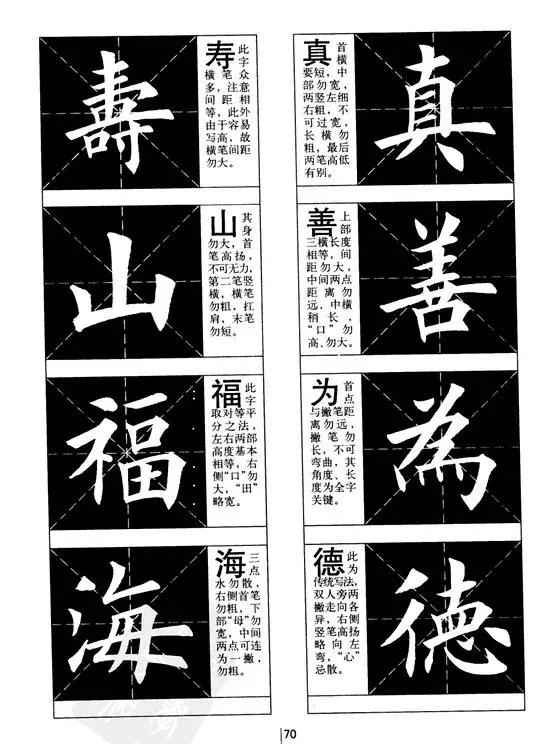 壽
寿 此字
横笔众
多，注意
间距相
等，此外
由于容易
写高，故
横笔间距
勿大。
山
山 其身
勿大，首
笔高扬，
不可无力，
第二笔竖
横，横笔
勿粗，扛
肩，末笔
勿短。
福
福 此字
取对等平
分之法，
左右两部
高度基本
相等，右
侧“口”勿
大，“田”
略宽。
海
海 三点
水勿散，
右侧首笔
勿粗，下
部“母”勿
宽，中间
两点可连
为一撇，
勿粗。
真
真 首横
要短，中
部勿宽，
两竖左细
右粗，不
可过宽，
长横勿
粗，最后
两笔高低
有别。
善
善 上部
三横长度
相等，间
距勿大，
中间两点
距离勿
远，中横
稍长，
“口”勿
高、勿大。
為
为 首点
与撇笔距
离勿远，
撇笔勿
长，不可
弯曲，其
角度、长
度为全字
关键。
德
德 此为
传统写法，
双人旁两
撇走向各
异，右侧
竖笔高扬
略向左
弯，“心”
忌散。
70